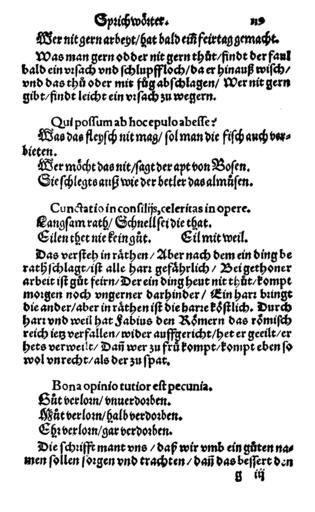 Sprichwörter. 119
Wer nit gern arbeyt/hat bald eiñ feirtag gemacht.
Was man gern odder nit gern thůt/findt der faul
bald ein vrsach vnd schlupffloch/da er hinauß wisch/
vnd das thů oder mit fůg abschlagen/ Wer nit gern
gibt/findt leicht ein vrsach zu wegern.
Qui possum ab hoc epulo abesse?
Was das fleysch nit mag/ sol man die fisch auch ver-
bieten.
Wer möcht das nit/sagt der apt von Bosen.
Sie schlegts auß wie der betler das almůsen.
Cunctatio in consilijs, celeritas in opere.
Langsam rath/ Schnell sei die that.
Eilen thet nie kein gůt. Eil mit weil.
Das versteh in räthen/ Aber nach dem ein ding be
rathschlagt/ist alle harr gefährlich/ Bei gethoner
arbeit ist gůt feirn/Der ein ding heut nit thůt/kompt
morgen noch vngerner darhinder/ Ein harr bringt
die ander/aber in räthen ist die harre köstlich. Durch
harr vnd weil hat Fabius den Römern das römisch
reich ietz verfallen/wider auffgericht/het er geeilt/er
hets verweilt/ Dañ wer zu frů kompt/kompt eben so
wol vnrecht/als der zu spat.
Bona opinio tutior est pecunia.
Gůt verlorn/ vnuerdorben.
Můt verlorn/halb verdorben.
Ehr verlorn/gar verdorben.
Die schrifft mant vns / daß wir vmb ein gůten na-
men sollen sorgen vnd trachten/ dañ das bessert den
g iij